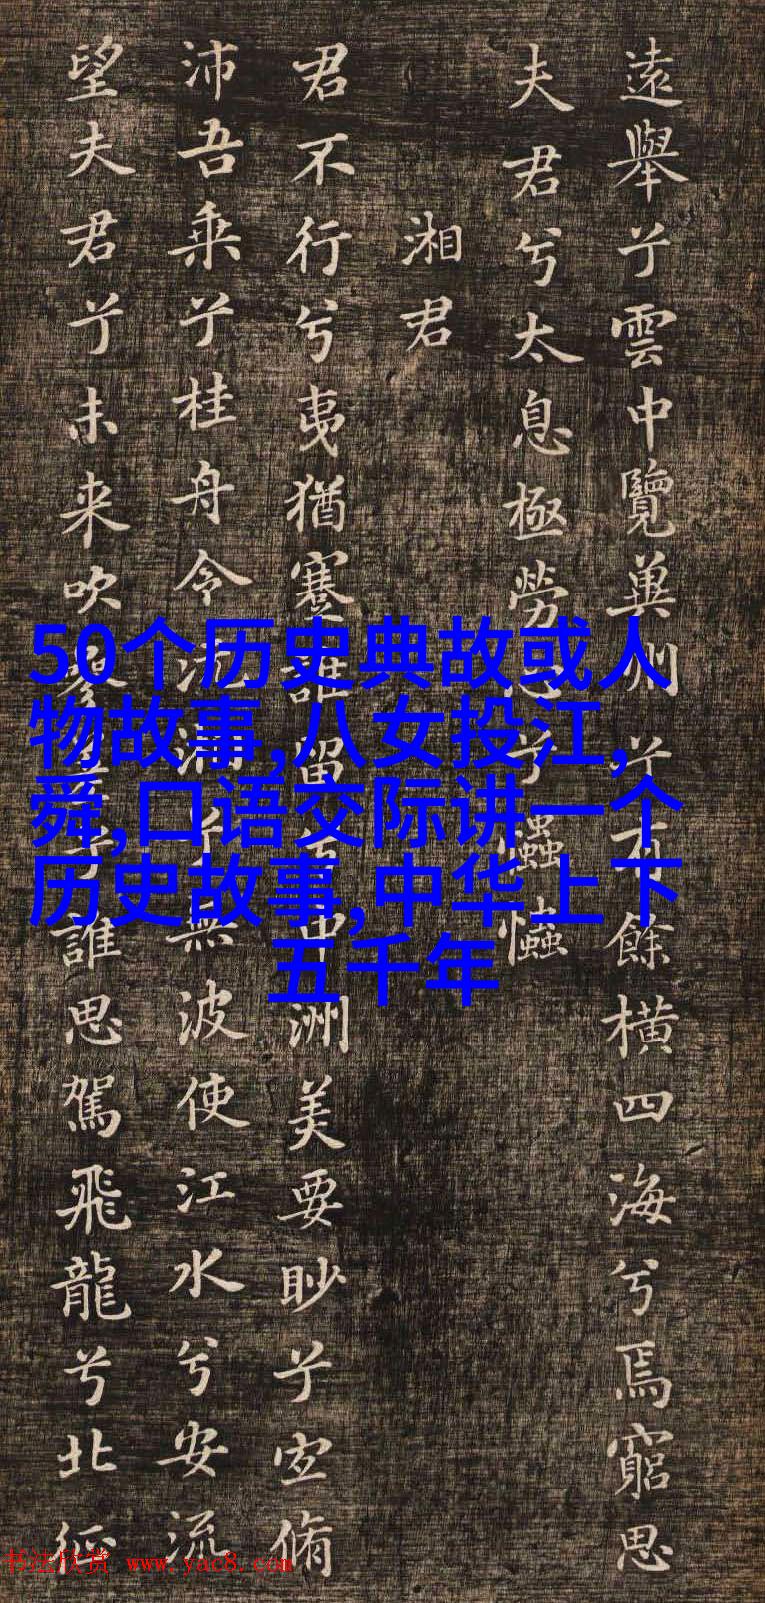 遠舉兮雲中覽兾州兮有餘橫四海兮焉窮思
夫君兮太息極勞心兮𢥞𢥞
湘君
君不行兮夷猶蹇誰留兮中洲美要眇兮宜脩
沛吾乘兮桂舟令沅湘兮無波使江水兮安流
望夫君兮未来吹參差兮誰思駕飛龍兮北征
50个历史典故或人
物故事,八女投江,
舜,口语交际讲一个
历史故事,中华上下
五千年
书法欣赏 www.yac8.com